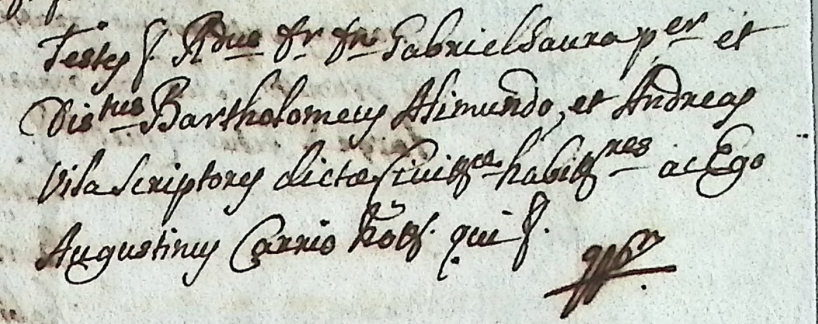 Testes s. Rdus fr frs Gabriel Saura per et
Distus Bartholomeus Asimundo, et Andreas
Vila Scriptores dictæ Civitis habitres ac Ego
Augustinus Carrio Nots. qui s.